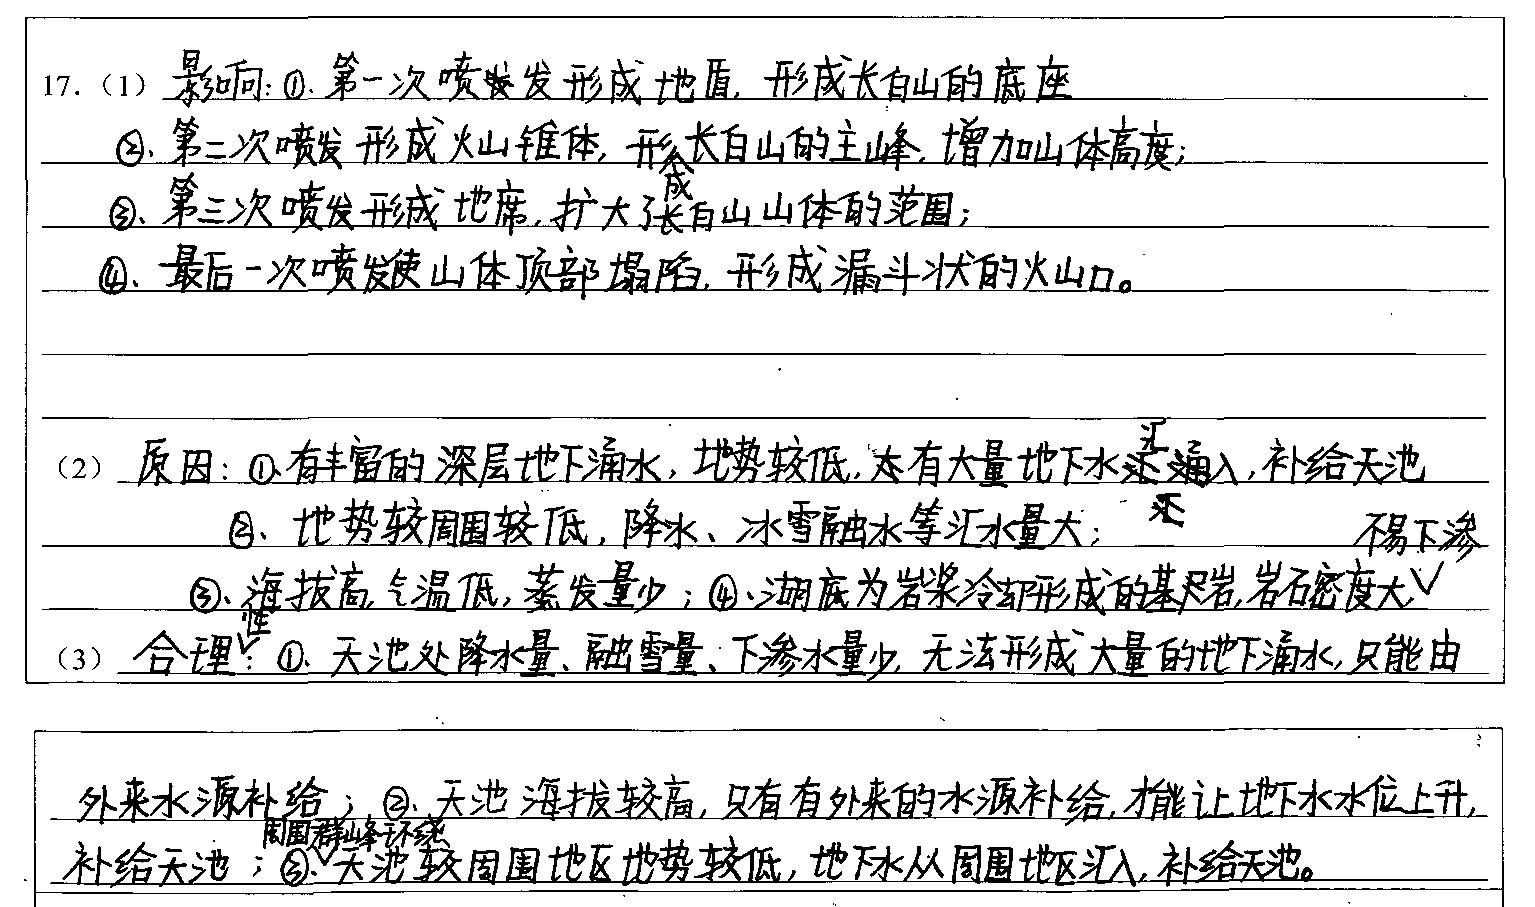 17.（1）影响：①、第一次喷发形成地盾，形成长白山的底座
②、第二次喷发形成火山锥体，形成长白山的主峰，增加山体高度；
③、第三次喷发形成地席，扩大了长白山山体的范围；
④、最后一次喷发使山体顶部塌陷，形成漏斗状的火山口。
（2）原因：①、有丰富的深层地下涌水，地势较低，有大量地下水汇入，补给天池
②、地势较周围较低，降水、冰雪融水等汇水量大；
③、海拔高，气温低，蒸发量少；④、湖底为岩浆冷却形成的基尺岩，岩石密度大，不易下渗
（3）合理性：①、天池处降水量、融雪量、下渗水量少，无法形成大量的地下涌水，只能由
外来水源补给；②、天池海拔较高，只有有外来的水源补给，才能让地下水水位上升，
补给天池；③、周围群峰环绕天池较周围地区地势较低，地下水从周围地区汇入，补给天池。